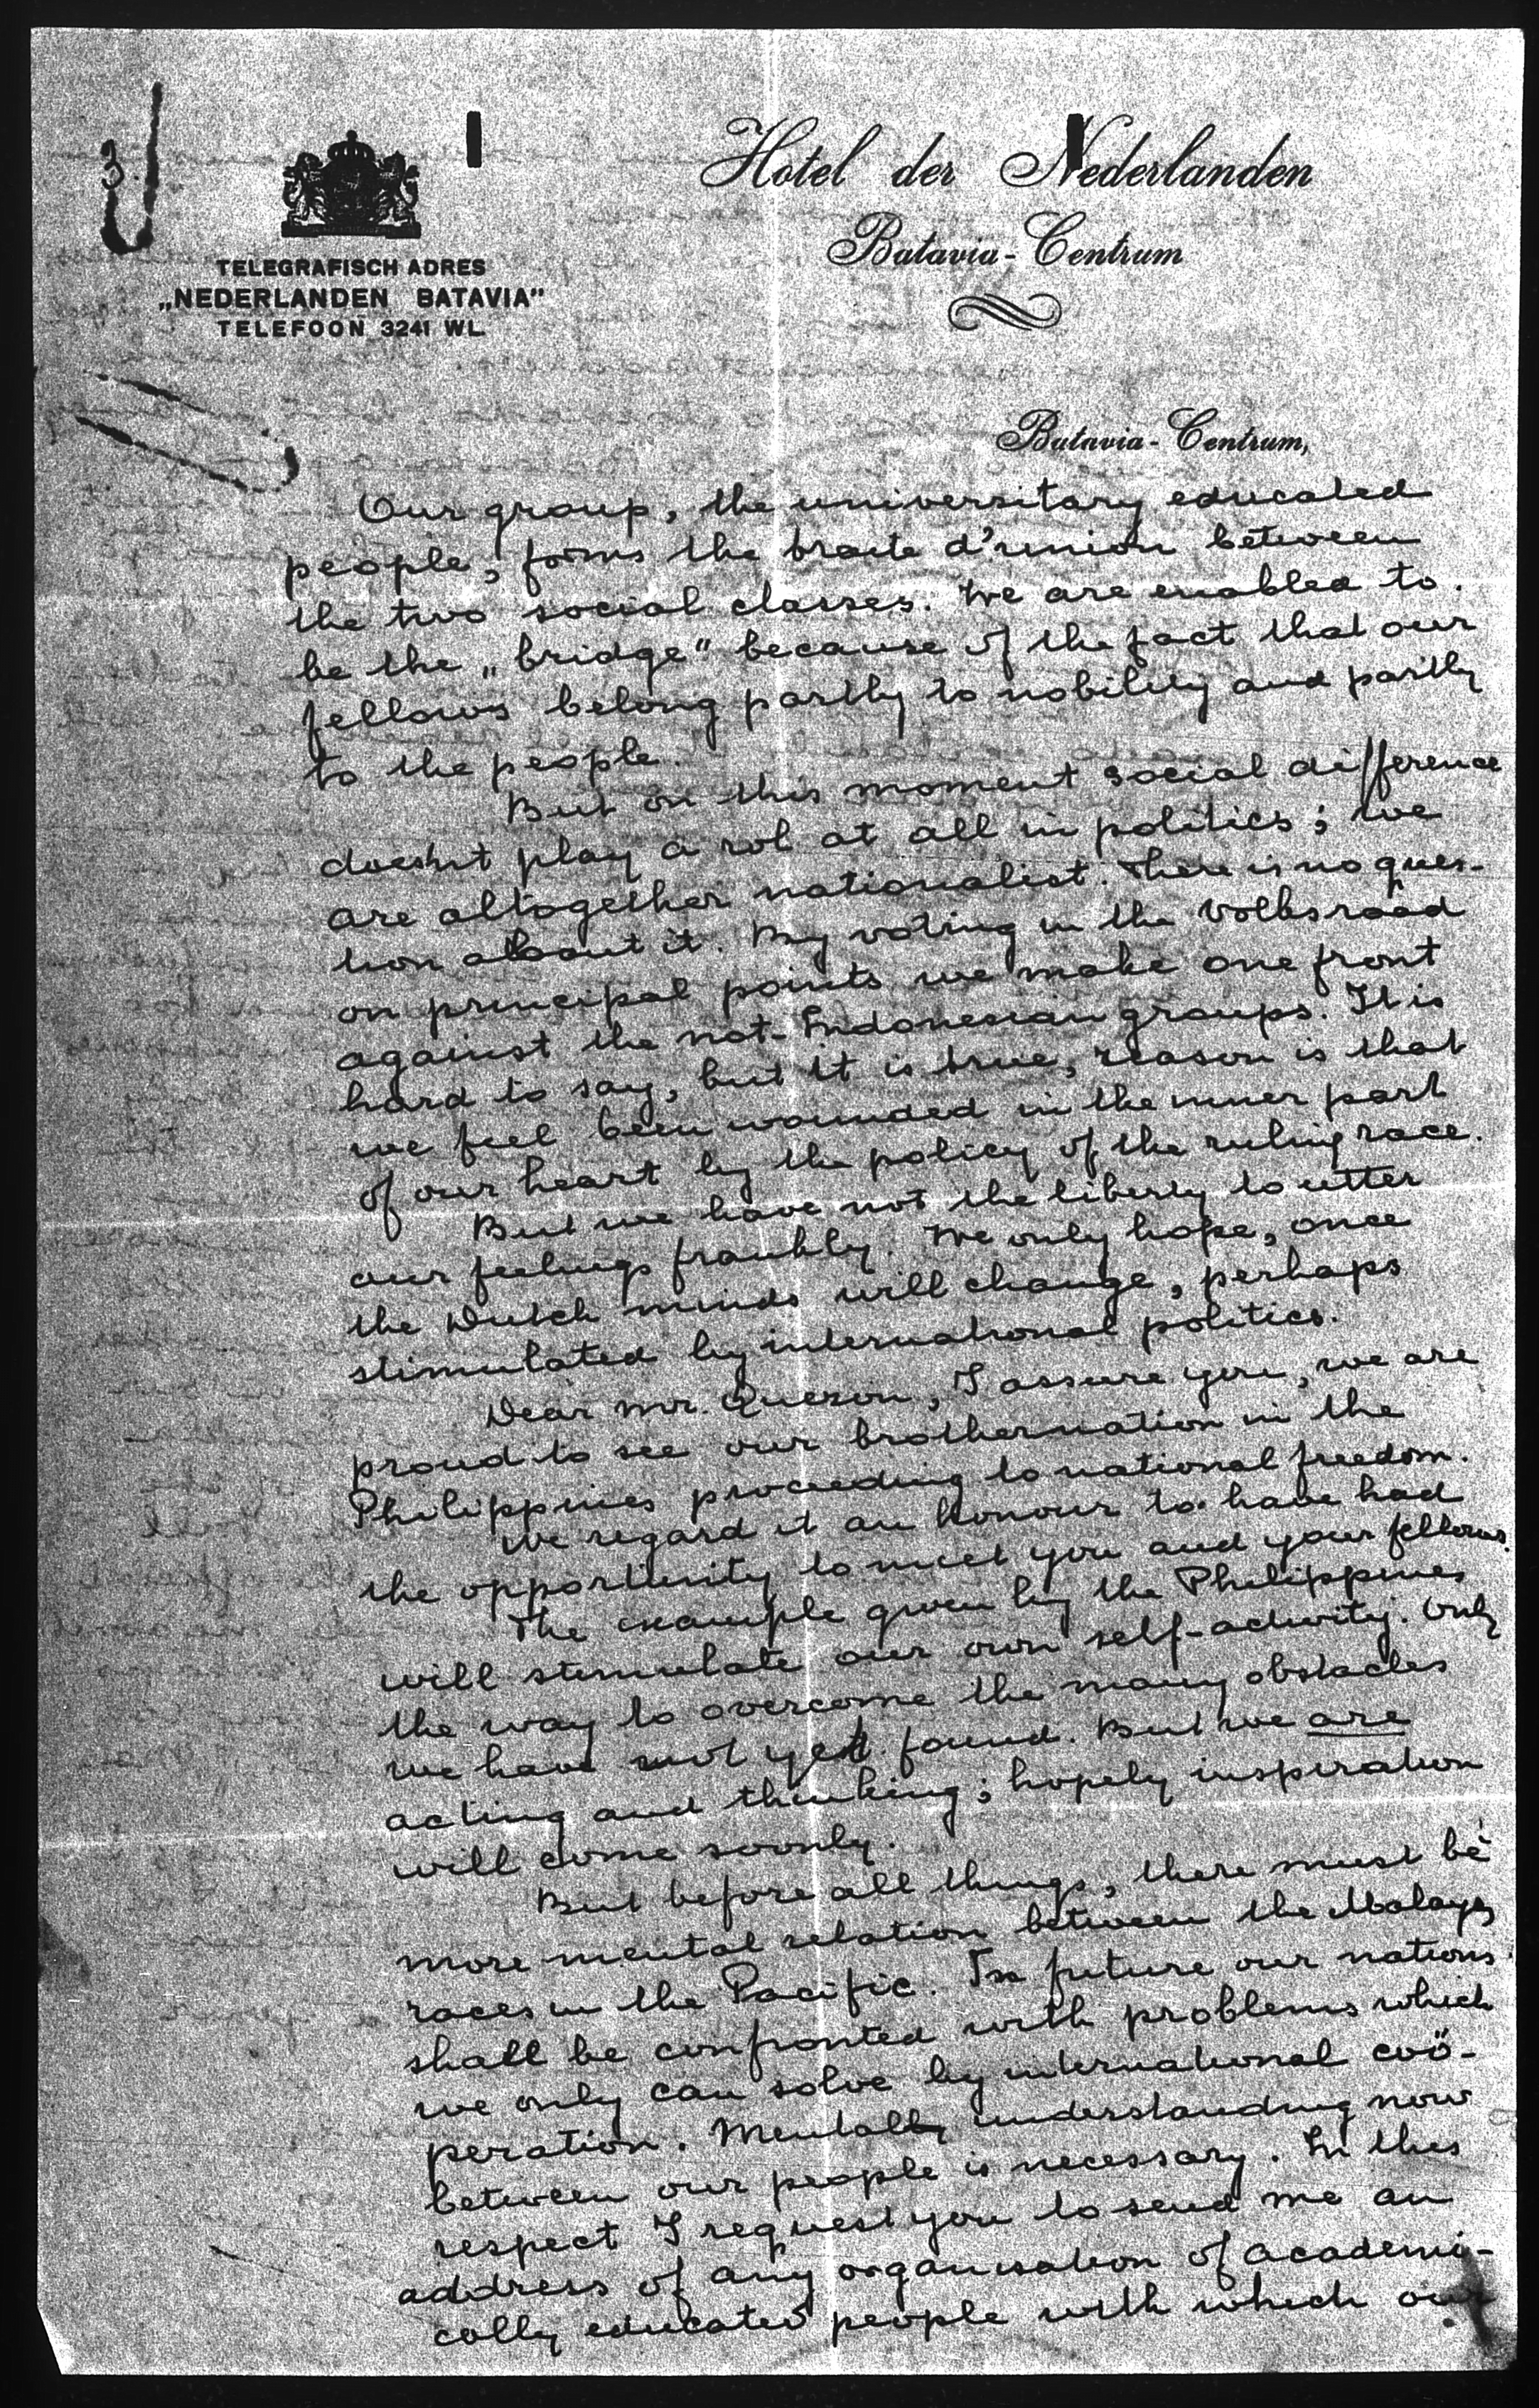 3
Hotel der Nederlanden
Batavia-Centrum
TELEGRAFISCH ADRES
„NEDERLANDEN BATAVIA"
TELEFOON 3241 WL.
Batavia-Centrum,
Our group, the universitary educated
people, forms the traite d'union between
the two social classes. We are enabled to
be the „bridge" because of the fact that our
fellows belong partly to nobility and partly
to the people.
But on this moment social difference
doesnt play a rol at all in politics; we
are altogether nationalist. There is no ques-
tion about it. By voting in the Volksraad
on principal points we make one front
against the not-Indonesian groups. It is
hard to say, but it is true, reason is that
we feel been wounded in the inner part
of our heart by the policy of the ruling race.
But we have not the liberty to utter
our feelings frankly. We only hope, once
the Dutch minds will change, perhaps
stimulated by international politics.
Dear mr. Quezon, I assure you, we are
proud to see our brothernation in the
Philippines proceeding to national freedom.
We regard it an honour to have had
the opportunity to meet you and your fellows.
The example given by the Philippines
will stimulate our own self-activity. Only
the way to overcome the many obstacles
we have not yet found. But we are
acting and thinking; hopely inspiration
will come soonly.
But before all things, there must be
more mental relation between the Malay
races in the Pacific. In future our nations
shall be confronted with problems which
we only can solve by international coö-
peration. Mentally understanding now
between our people is necessary. In this
respect I request you to send me an
address of any organisation of academi-
cally educated people with which our